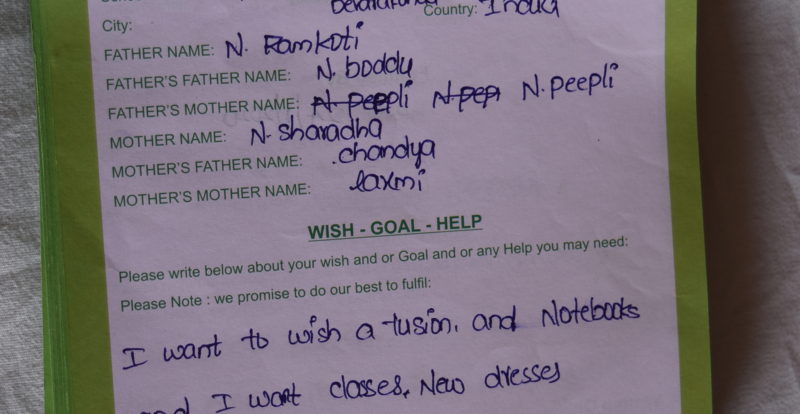 Country: India
City:
FATHER NAME: N. Ramkoti
FATHER'S FATHER NAME: N. boddy
FATHER'S MOTHER NAME: N. peepli N. pep N. peepli
MOTHER NAME: N. sharadha
MOTHER'S FATHER NAME: . chandya
MOTHER'S MOTHER NAME: laxmi
WISH - GOAL - HELP
Please write below about your wish and or Goal and or any Help you may need:
Please Note : we promise to do our best to fulfil:
I want to wish a tusion. and Notebooks
and I want classes. New dresses